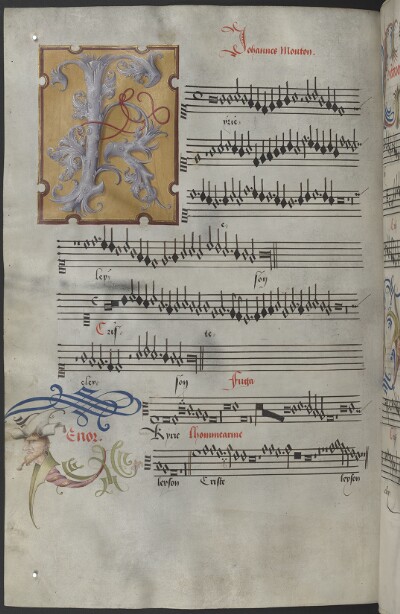 K
Johannes Mouton.
yrie:
e:
ley: son
Crist te:
eley: son Fuga
Tenor.
Kyrie Lhommearme
leyson Criste leyson